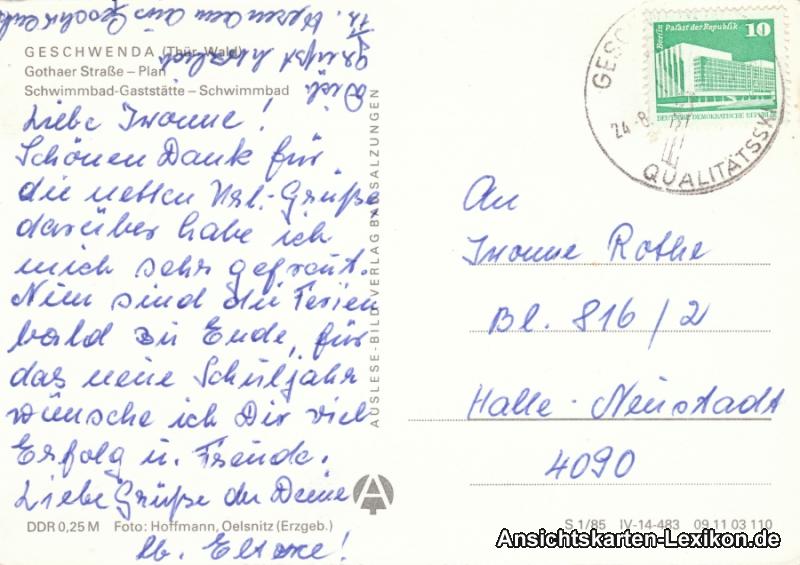 GESCHWENDA (Thür. Wald)
Gothaer Straße – Plan
Schwimmbad-Gaststätte – Schwimmbad
Liebe Ivonne!
Schönen Dank für
die netten Url.-Grüße,
darüber habe ich
mich sehr gefreut.
Nun sind die Ferien
bald zu Ende, für
das neue Schuljahr
wünsche ich Dir viel
Erfolg u. Freude.
Liebe Grüße
Dich
grüßt herzlich
aus
DDR 0,25 M Foto: Hoffmann, Oelsnitz (Erzgeb.)
AUSLESE-BILD-VERLAG BAD SALZUNGEN
Berlin Palast der Republik 10
DEUTSCHE DEMOKRATISCHE REPUBLIK
GESC
24.8.
QUALITÄTSSK
An
Ivonne Rothe
Bl. 816/2
Halle-Neustadt
4090
S 1/85 IV-14-483 09 11 03 110
Ansichtskarten-Lexikon.de